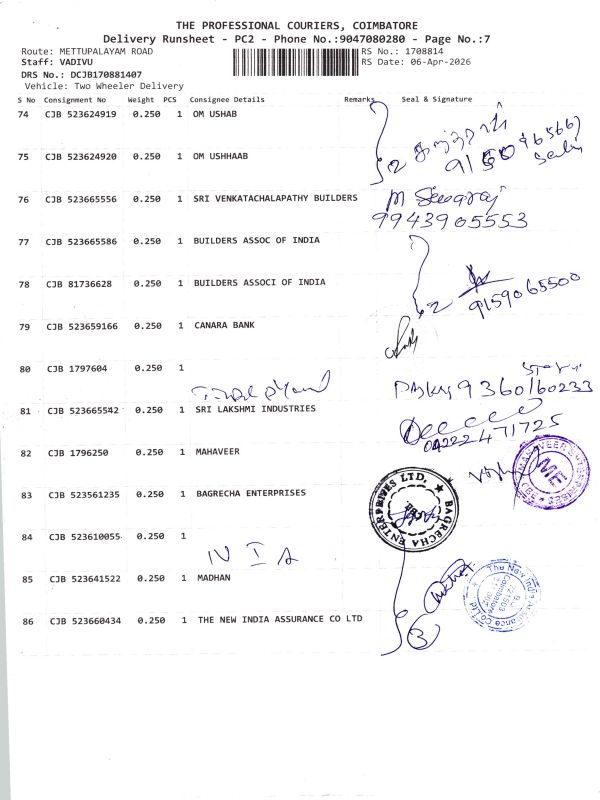 THE PROFESSIONAL COURIERS, COIMBATORE
Delivery Runsheet - PC2 - Phone No.:9047080280 - Page No.:7
Route: METTUPALAYAM ROAD
RS No.: 1708814
Staff: VADIVU
RS Date: 06-Apr-2026
DRS No.: DCJB170881407
Vehicle: Two Wheeler Delivery
S No Consignment No Weight PCS Consignee Details Remarks Seal & Signature
74 CJB 523624919 0.250 1 OM USHAB
2
75 CJB 523624920 0.250 1 OM USHHAAB
76 CJB 523665556 0.250 1 SRI VENKATACHALAPATHY BUILDERS
M Sivaraj
9943905553
77 CJB 523665586 0.250 1 BUILDERS ASSOC OF INDIA
78 CJB 81736628 0.250 1 BUILDERS ASSOCI OF INDIA
2 9159065500
79 CJB 523659166 0.250 1 CANARA BANK
80 CJB 1797604 0.250 1
9360160233
81 CJB 523665542 0.250 1 SRI LAKSHMI INDUSTRIES
04222471725
82 CJB 1796250 0.250 1 MAHAVEER
MAHAVEER ENTERPRISES
ME
83 CJB 523561235 0.250 1 BAGRECHA ENTERPRISES
BAGRECHA ENTERPRISES LTD.
84 CJB 523610055 0.250 1
N I A
85 CJB 523641522 0.250 1 MADHAN
The New India Assurance Co Ltd
86 CJB 523660434 0.250 1 THE NEW INDIA ASSURANCE CO LTD
3